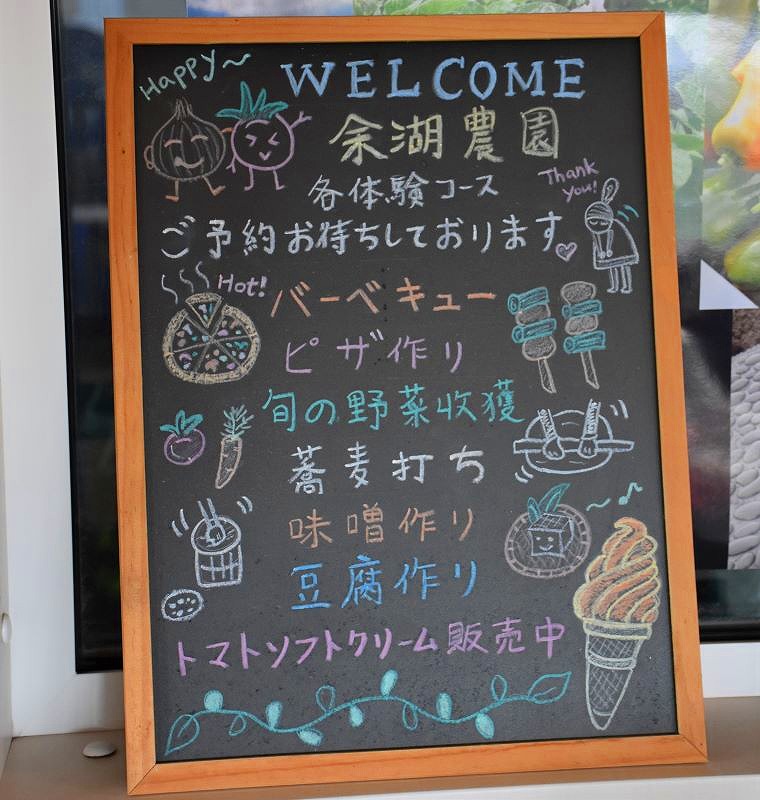 Happy~
WELCOME
余湖農園
各体験コース
Thank you!
ご予約お待ちしております
Hot!
バーベキュー
ピザ作り
旬の野菜収獲
蕎麦打ち
味噌作り
豆腐作り
トマトソフトクリーム販売中